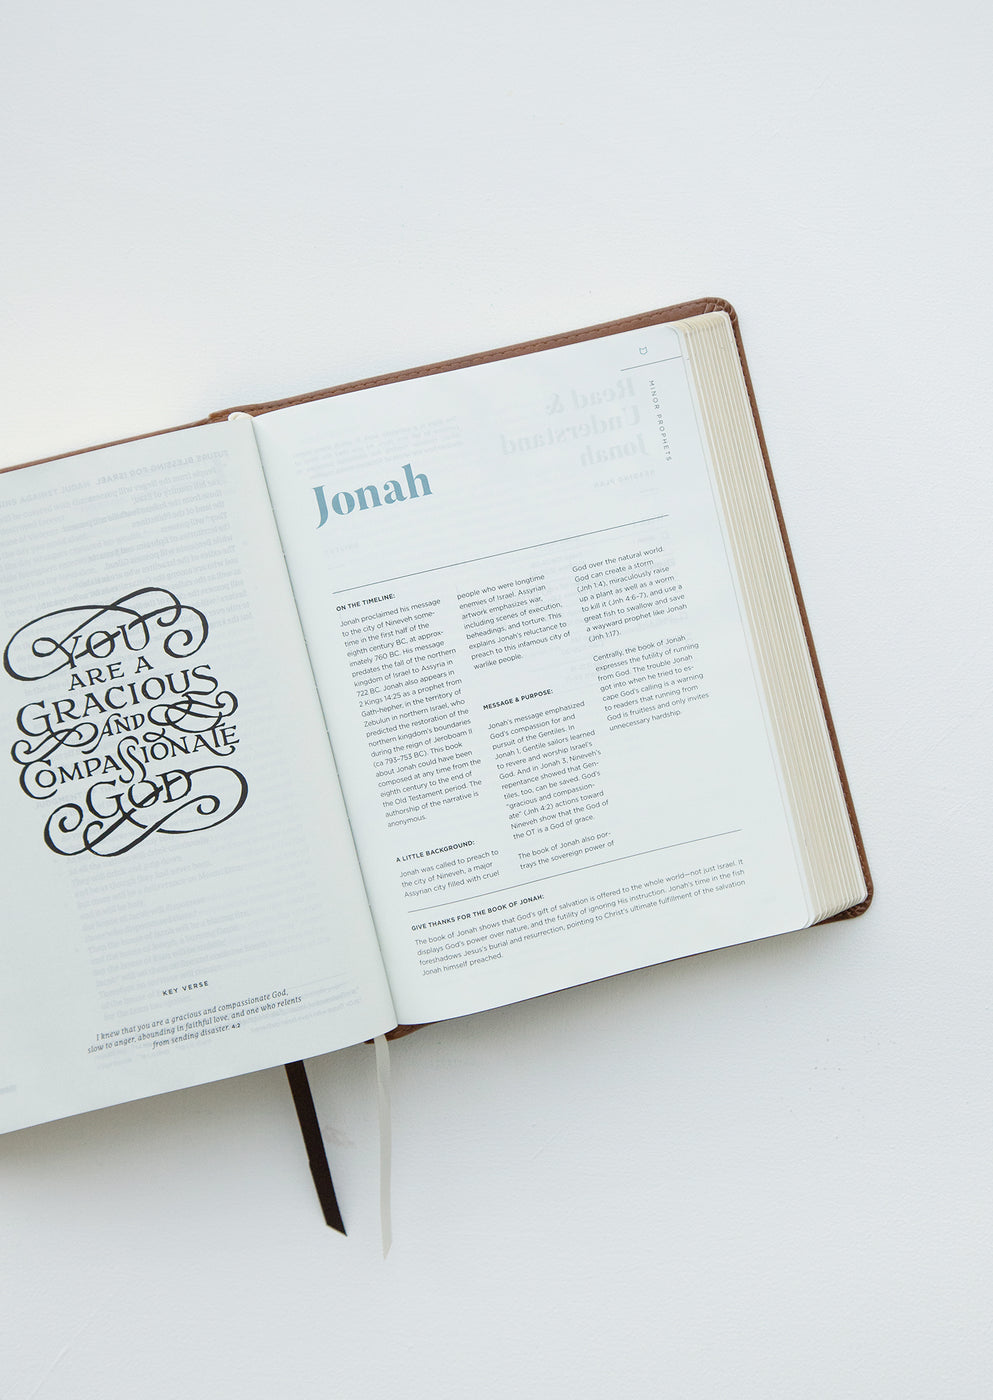 YOU
ARE A
GRACIOUS
AND
COMPASSIONATE
GOD
KEY VERSE
I knew that you are a gracious and compassionate God,
slow to anger, abounding in faithful love, and one who relents
from sending disaster. 4:2
MINOR PROPHETS
Jonah
ON THE TIMELINE:
Jonah proclaimed his message
to the city of Nineveh some-
time in the first half of the
eighth century BC, at approx-
imately 760 BC. His message
predates the fall of the northern
kingdom of Israel to Assyria in
722 BC. Jonah also appears in
2 Kings 14:25 as a prophet from
Gath-hepher, in the territory of
Zebulun in northern Israel, who
predicted the restoration of the
northern kingdom's boundaries
during the reign of Jeroboam II
(ca 793–753 BC). This book
about Jonah could have been
composed at any time from the
eighth century to the end of
the Old Testament period. The
authorship of the narrative is
anonymous.
A LITTLE BACKGROUND:
Jonah was called to preach to
the city of Nineveh, a major
Assyrian city filled with cruel
people who were longtime
enemies of Israel. Assyrian
artwork emphasizes war,
including scenes of execution,
beheadings, and torture. This
explains Jonah's reluctance to
preach to this infamous city of
warlike people.
MESSAGE & PURPOSE:
Jonah's message emphasized
God's compassion for and
pursuit of the Gentiles. In
Jonah 1, Gentile sailors learned
to revere and worship Israel's
God. And in Jonah 3, Nineveh's
repentance showed that Gen-
tiles, too, can be saved. God's
"gracious and compassion-
ate" (Jnh 4:2) actions toward
Nineveh show that the God of
the OT is a God of grace.
The book of Jonah also por-
trays the sovereign power of
God over the natural world.
God can create a storm
(Jnh 1:4), miraculously raise
up a plant as well as a worm
to kill it (Jnh 4:6–7), and use a
great fish to swallow and save
a wayward prophet like Jonah
(Jnh 1:17).
Centrally, the book of Jonah
expresses the futility of running
from God. The trouble Jonah
got into when he tried to es-
cape God's calling is a warning
to readers that running from
God is fruitless and only invites
unnecessary hardship.
GIVE THANKS FOR THE BOOK OF JONAH:
The book of Jonah shows that God's gift of salvation is offered to the whole world—not just Israel. It
displays God's power over nature, and the futility of ignoring His instruction. Jonah's time in the fish
foreshadows Jesus's burial and resurrection, pointing to Christ's ultimate fulfillment of the salvation
Jonah himself preached.